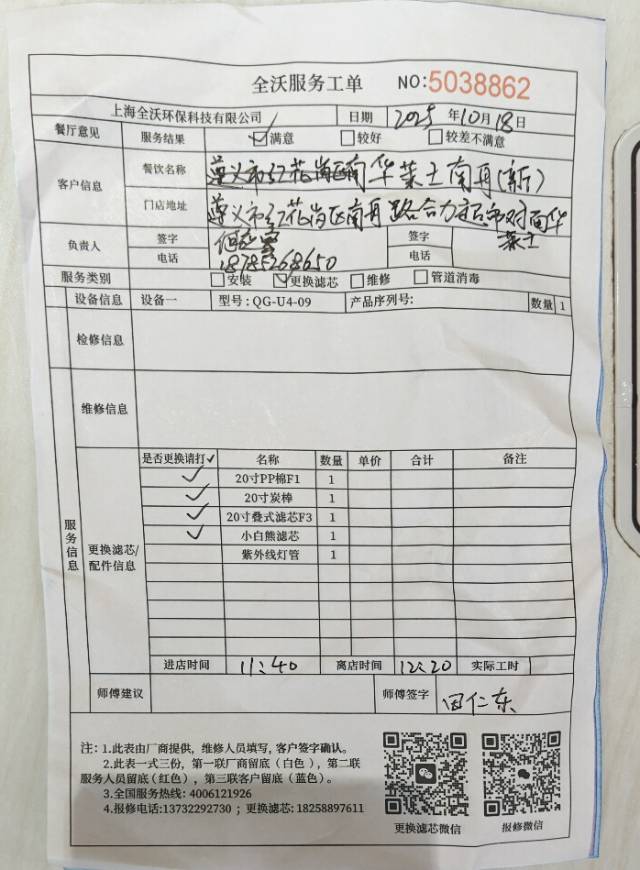 全沃服务工单 NO:5038862
上海全沃环保科技有限公司 日期 2025 年 10 月 18 日
餐厅意见 服务结果 ☑满意 □较好 □较差不满意
客户信息 餐饮名称 遵义市红花岗区南华莱士南舟(新)
门店地址 遵义市红花岗区南舟路合力超市对面华莱士
负责人 签字 签字
电话 18785268650 电话
服务类别 □安装 ☑更换滤芯 □维修 □管道消毒
设备信息 设备一 型号:QG-U4-09 产品序列号: 数量 1
检修信息
维修信息
服务信息
更换滤芯/配件信息
是否更换请打✓ 名称 数量 单价 合计 备注
✓ 20寸PP棉F1 1
✓ 20寸炭棒 1
✓ 20寸叠式滤芯F3 1
✓ 小白熊滤芯 1
紫外线灯管 1
进店时间 11:40 离店时间 12:20 实际工时
师傅建议 师傅签字 田仁东
注:1.此表由厂商提供,维修人员填写,客户签字确认。
2.此表一式三份,第一联厂商留底(白色),第二联
服务人员留底(红色),第三联客户留底(蓝色)。
3.全国服务热线: 4006121926
4.报修电话:13732292730 ; 更换滤芯: 18258897611
更换滤芯微信 报修微信